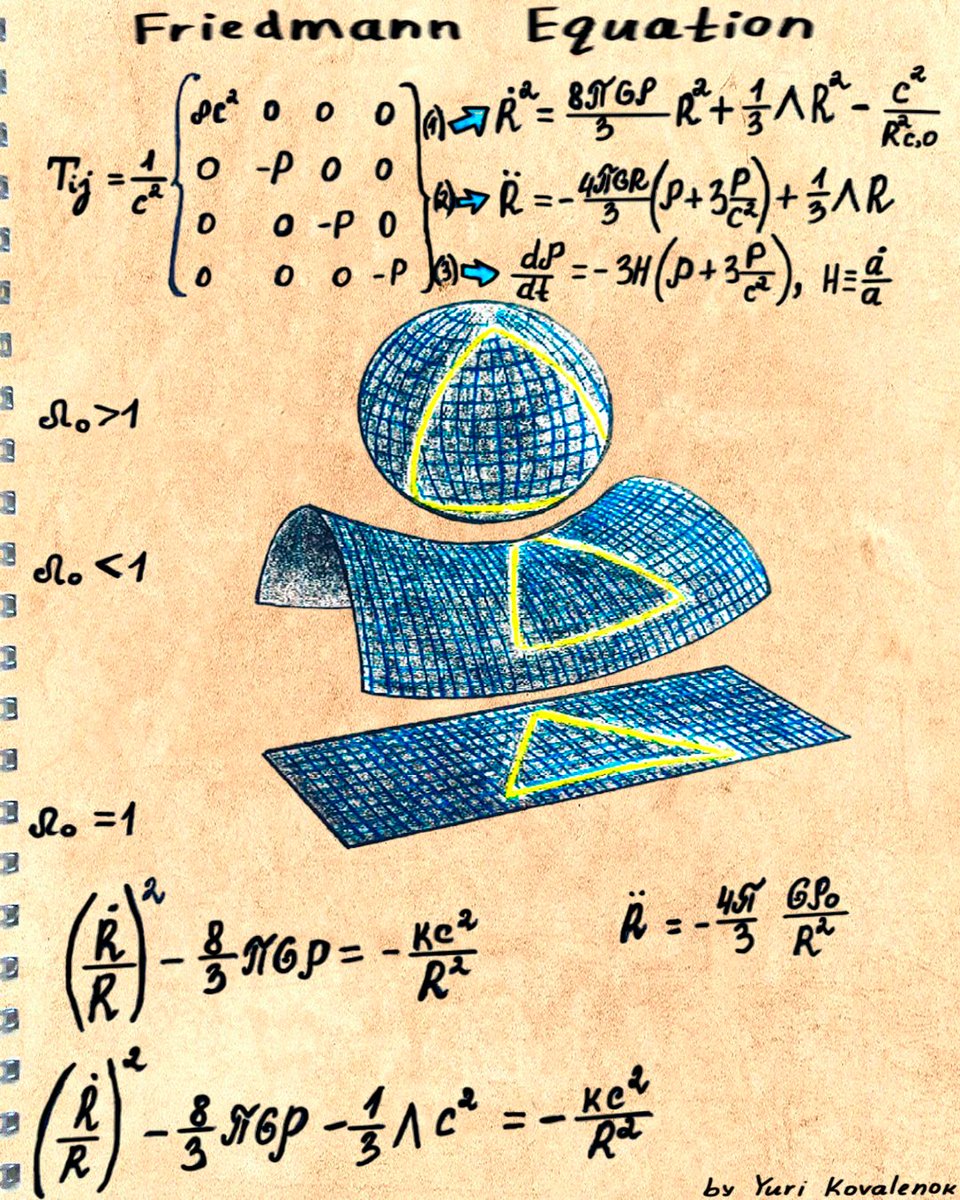 Friedmann Equation
Tij = 1/c² { ρc² 0 0 0
0 -P 0 0
0 0 -P 0
0 0 0 -P }
(1) ⇒ Ṙ² = 8πGρ/3 R² + 1/3 ΛR² - c²/R²c,0
(2) ⇒ R̈ = - 4πGR/3 (ρ + 3 P/c²) + 1/3 ΛR
(3) ⇒ dρ/dt = - 3H(ρ + 3 P/c²), H ≡ ȧ/a
Ω₀ > 1
Ω₀ < 1
Ω₀ = 1
(Ṙ/R)² - 8/3 πGρ = - kc²/R²
R̈ = - 4π/3 Gρ₀/R²
(Ṙ/R)² - 8/3 πGρ - 1/3 Λc² = - kc²/R²
by Yuri Kovalenok